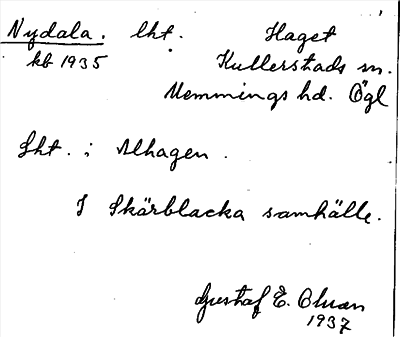 Nydala. lht. Haget
kb 1935 Kullerstads sn.
Memmings hd. Ögl
Lht. i Alhagen.
I Skärblacka samhälle.
Gustaf E. Olsson
1937